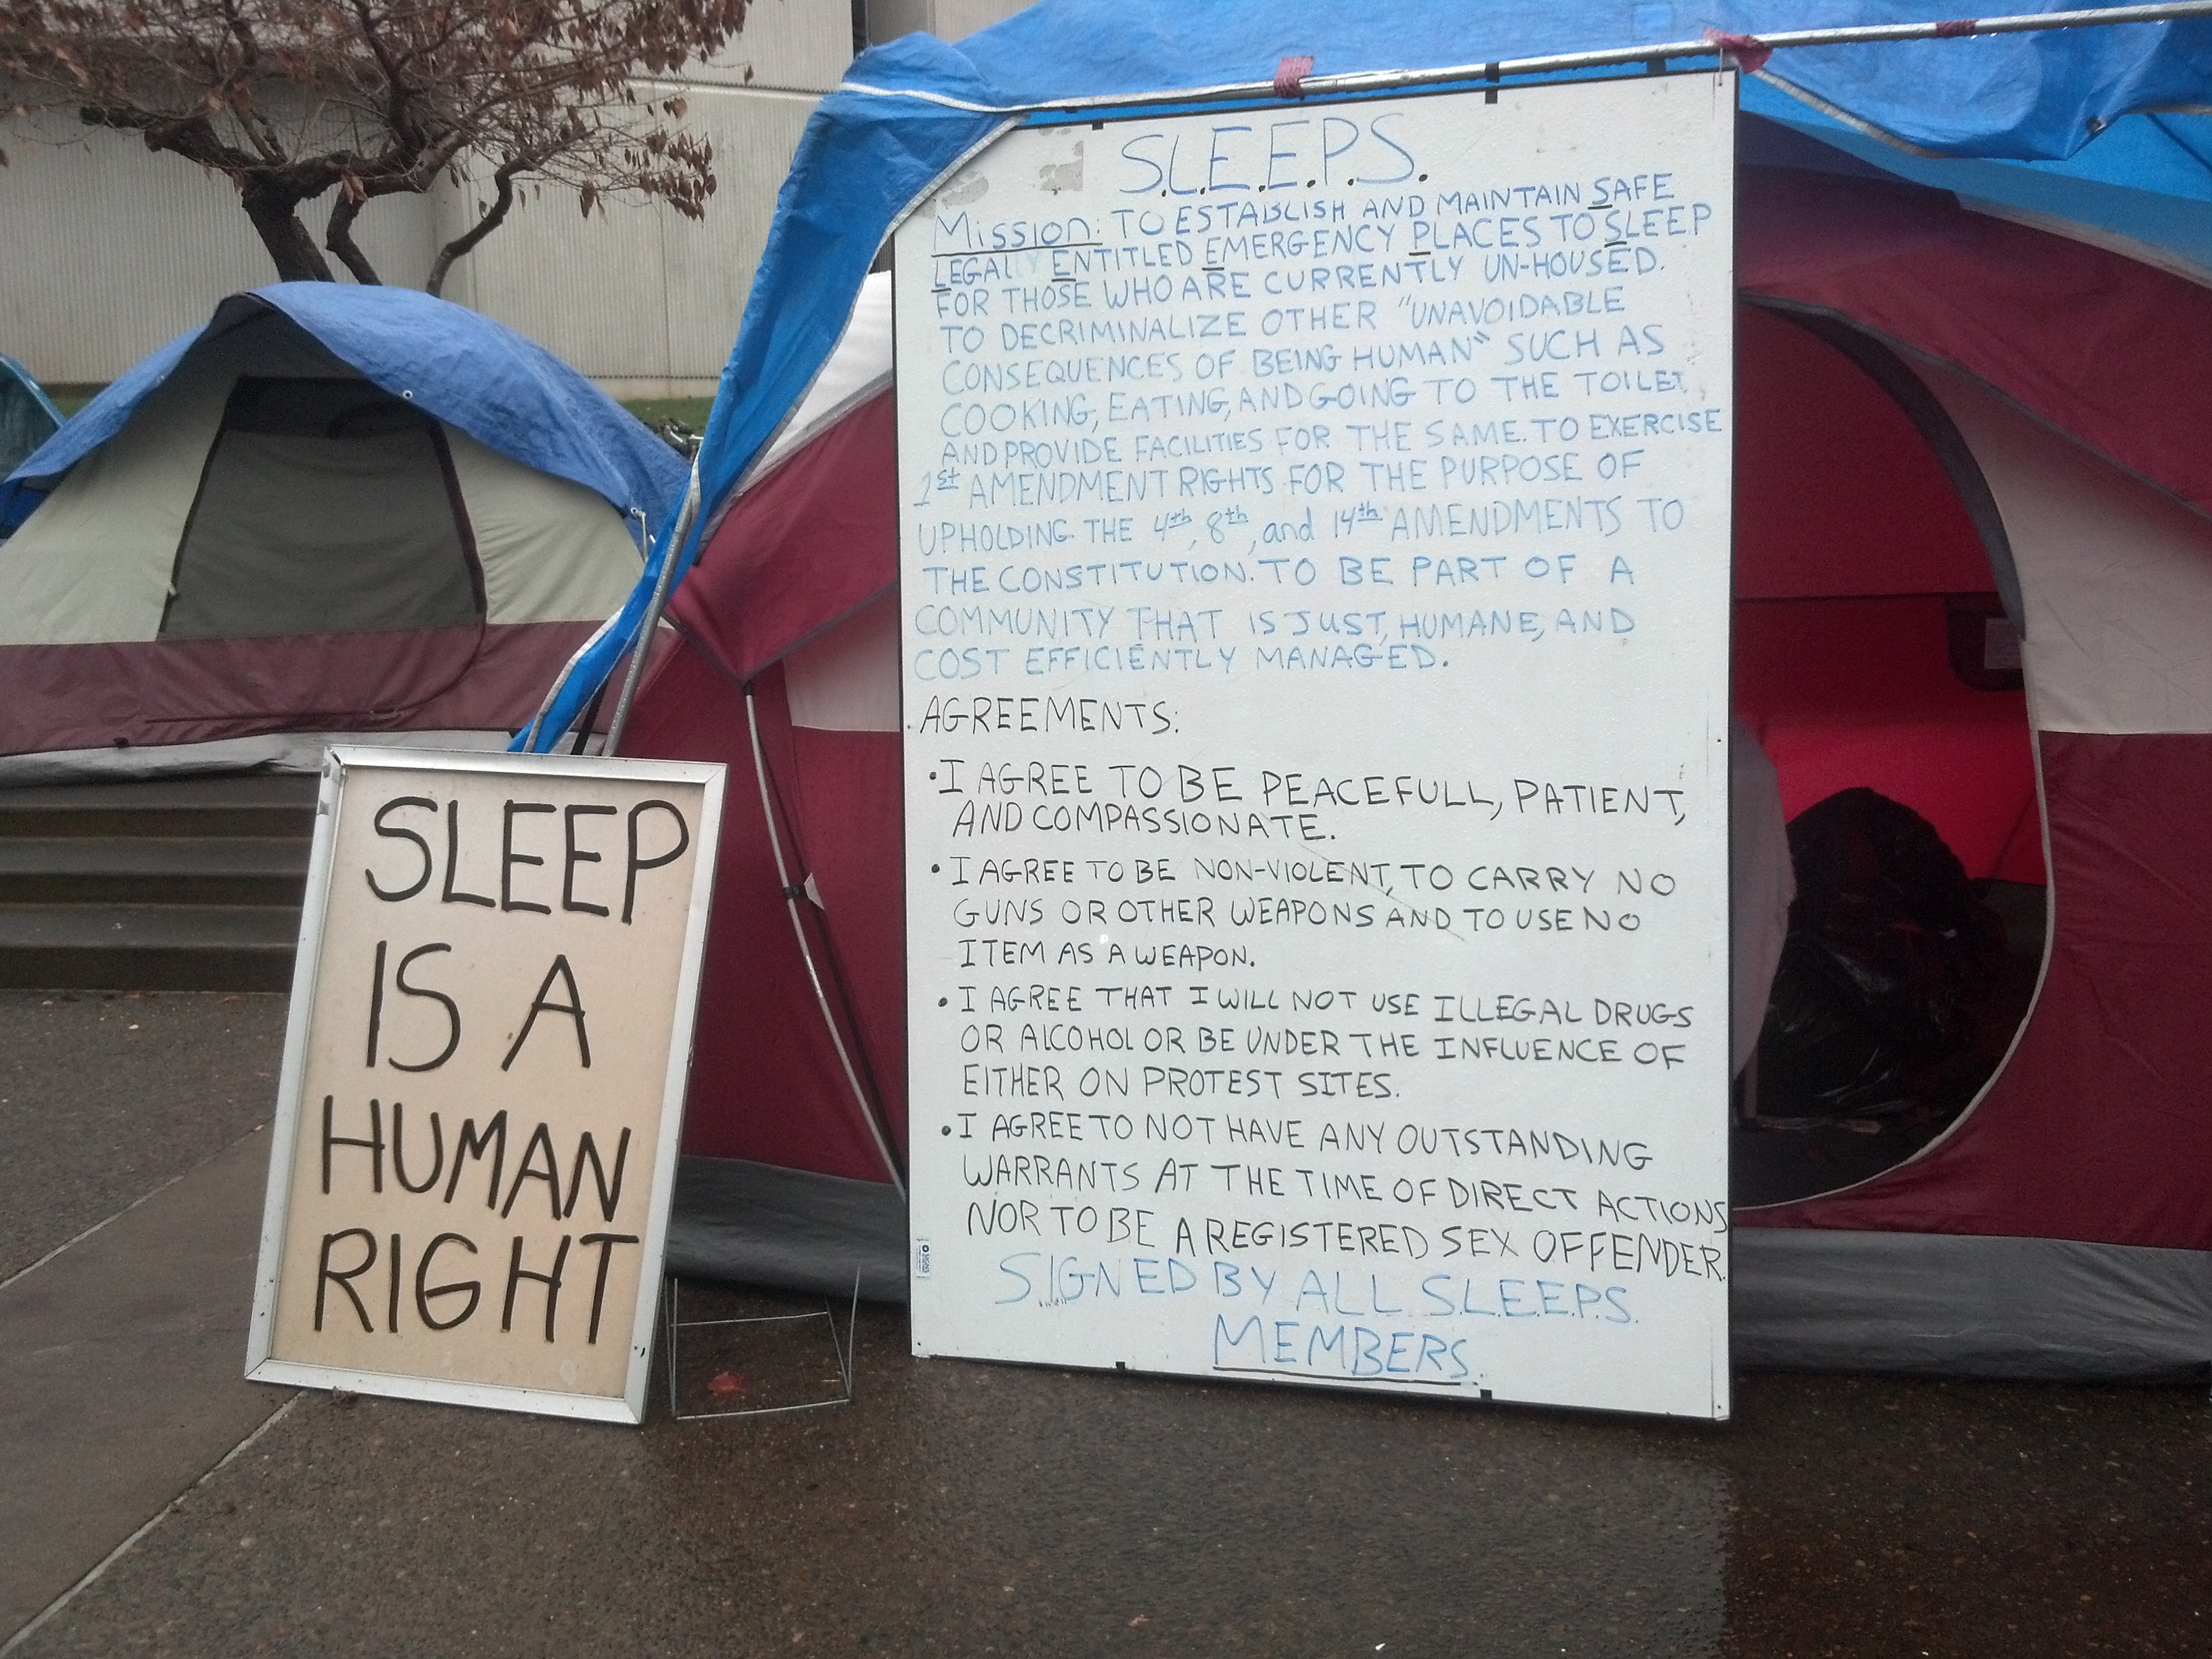 SLEEP
IS A
HUMAN
RIGHT
S.L.E.E.P.S.
Mission: TO ESTABLISH AND MAINTAIN SAFE
LEGALLY ENTITLED EMERGENCY PLACES TO SLEEP
FOR THOSE WHO ARE CURRENTLY UN-HOUSED.
TO DECRIMINALIZE OTHER "UNAVOIDABLE
CONSEQUENCES OF BEING HUMAN" SUCH AS
COOKING, EATING, AND GOING TO THE TOILET
AND PROVIDE FACILITIES FOR THE SAME. TO EXERCISE
1st AMENDMENT RIGHTS FOR THE PURPOSE OF
UPHOLDING THE 4th, 8th, and 14th AMENDMENTS TO
THE CONSTITUTION. TO BE PART OF A
COMMUNITY THAT IS JUST, HUMANE, AND
COST EFFICIENTLY MANAGED.
AGREEMENTS:
• I AGREE TO BE PEACEFULL, PATIENT,
AND COMPASSIONATE.
• I AGREE TO BE NON-VIOLENT, TO CARRY NO
GUNS OR OTHER WEAPONS AND TO USE NO
ITEM AS A WEAPON.
• I AGREE THAT I WILL NOT USE ILLEGAL DRUGS
OR ALCOHOL OR BE UNDER THE INFLUENCE OF
EITHER ON PROTEST SITES.
• I AGREE TO NOT HAVE ANY OUTSTANDING
WARRANTS AT THE TIME OF DIRECT ACTIONS
NOR TO BE A REGISTERED SEX OFFENDER.
SIGNED BY ALL S.L.E.E.P.S.
MEMBERS.